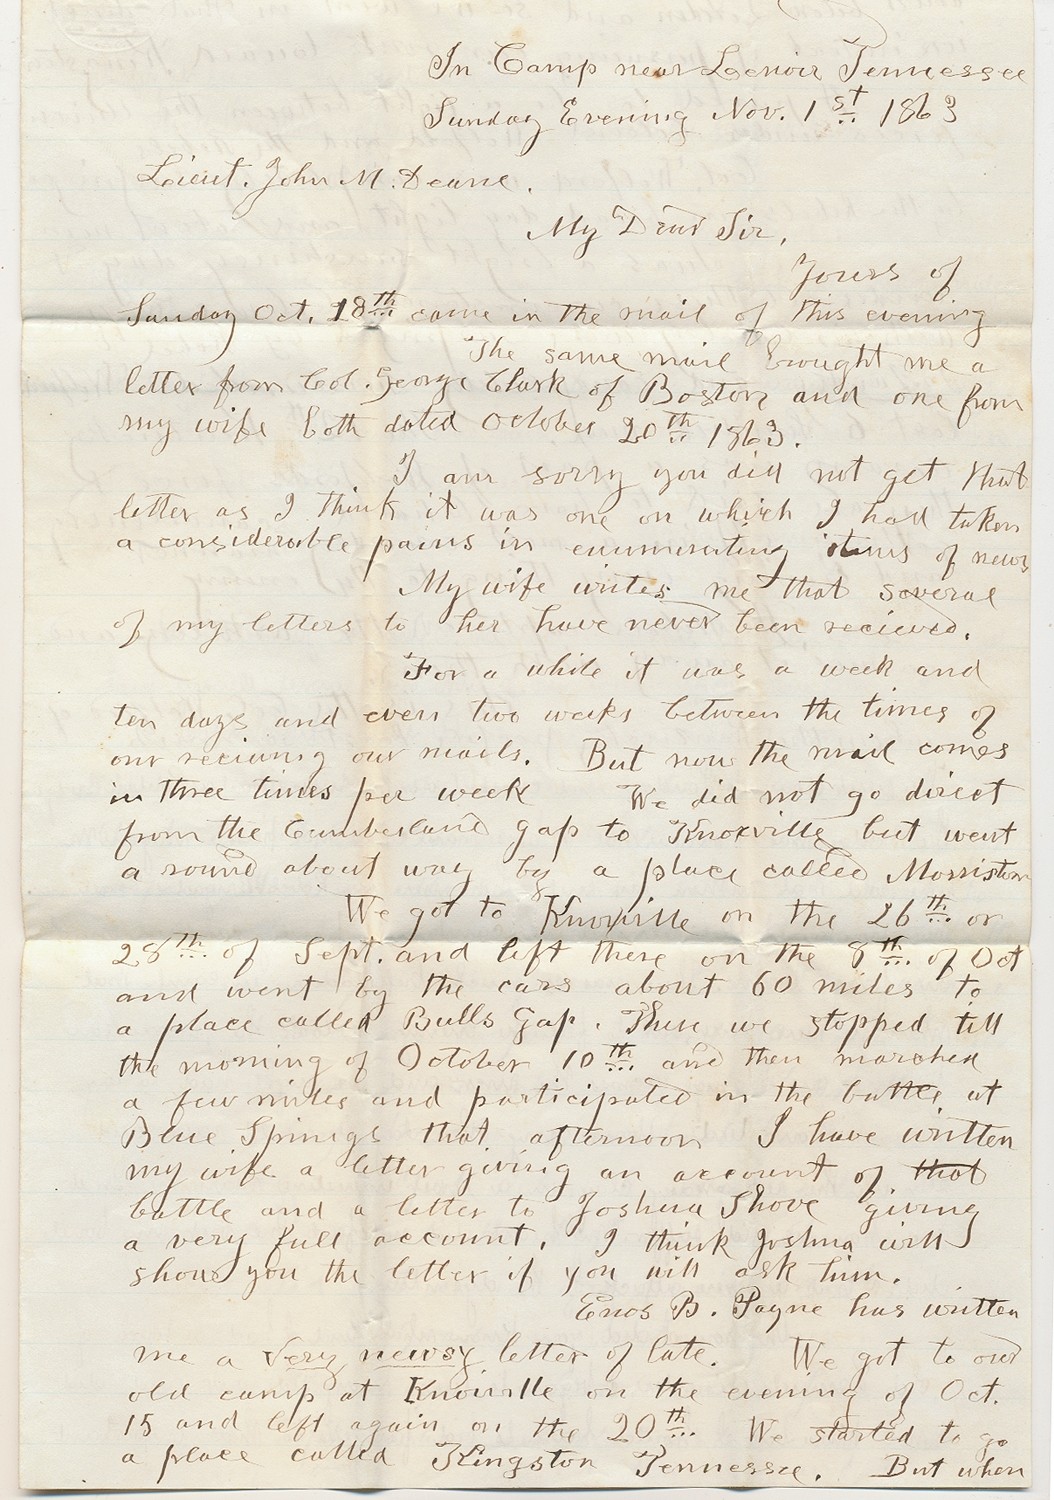 In Camp near Lenoir Tennessee
Sunday Evening Nov. 1st 1863
Lieut. John M. Deane.
My Dear Sir,
Yours of
Sunday Oct. 18th came in the mail of this evening
The same mail brought me a
letter from Col. George Clark of Boston and one from
my wife both dated October 20th 1863.
I am sorry you did not get that
letter as I think it was one on which I had taken
a considerable pains in enumerating items of news
My wife writes me that several
of my letters to her have never been recieved.
For a while it was a week and
ten days and even two weeks between the times of
our reciving our mails. But now the mail comes
in three times per week We did not go direct
from the Cumberland gap to Knoxville but went
a round about way by a place called Morriston
We got to Knoxville on the 26th or
28th of Sept. and left there on the 8th of Oct
and went by the cars about 60 miles to
a place called Bulls Gap. There we stopped till
the morning of October 10th and then marched
a few miles and participated in the battle at
Blue Springs that afternoon I have written
my wife a letter giving an account of that
battle and a letter to Joshua Shove giving
a very full account. I think Joshua will
show you the letter if you will ask him.
Enos B. Payne has written
me a very newsy letter of late. We got to our
old camp at Knoxville on the evening of Oct.
15 and left again on the 20th We started to go
a place called Kingston Tennessee. But when